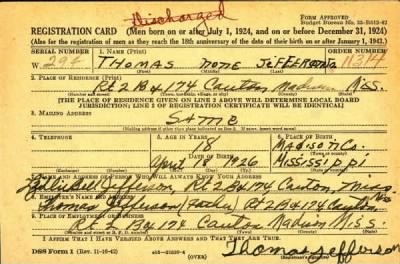 Discharged
FORM APPROVED
REGISTRATION CARD (Men born on or after July 1, 1924, and on or before December 31, 1924)
(Also for the registration of men as they reach the 18th anniversary of the date of their birth on or after January 1, 1943.)
SERIAL NUMBER 1. NAME (Print) ORDER NUMBER
W 294 THOMAS NONE JEFFERSON 11314
2. PLACE OF RESIDENCE (Print)
Rt 2 B 174 Canton Madison Miss.
[THE PLACE OF RESIDENCE GIVEN ON LINE 2 ABOVE WILL DETERMINE LOCAL BOARD
JURISDICTION; LINE 2 OF REGISTRATION CERTIFICATE WILL BE IDENTICAL]
3. MAILING ADDRESS
SAME
4. TELEPHONE 5. AGE IN YEARS 6. PLACE OF BIRTH
18 MADISON CO.
DATE OF BIRTH
April 18 1926 MISSISSIPPI
7. NAME AND ADDRESS OF PERSON WHO WILL ALWAYS KNOW YOUR ADDRESS
Bell Jefferson, Rt 2 B 174 Canton, Miss
8. EMPLOYER'S NAME AND ADDRESS
Thomas Jefferson (Father) Rt 2 B 174 Canton
9. PLACE OF EMPLOYMENT OR BUSINESS
Rt 2 B 174 Canton Madison Miss.
I AFFIRM THAT I HAVE VERIFIED ABOVE ANSWERS AND THAT THEY ARE TRUE.
DSS Form 1 (Rev. 11-16-42) (OVER)
Thomas Jefferson